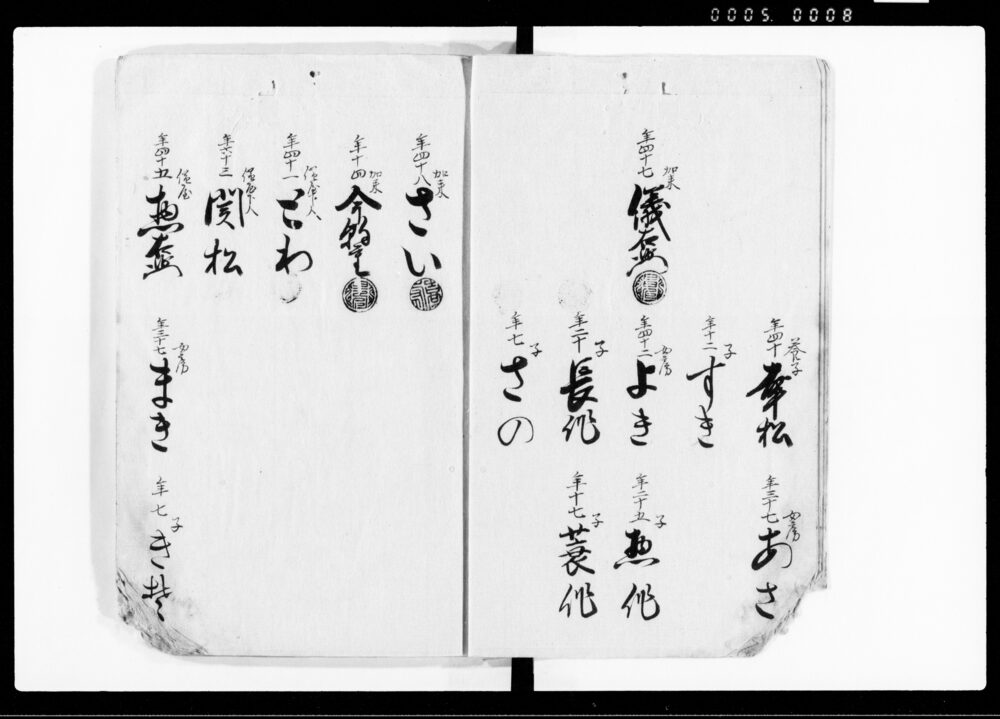 0005. 0008
養子
年四十
幸松
女房
年三十七
あさ
子
年十二
すき
加来
年四十七
儀
女房
年四十二
よき
子
年二十五
惣作
子
年二十
長作
子
年十七
蓑作
子
年七
さの
加来
年四十八
さい
加来
年十四
年四十一
とわ
年六十三
関松
借屋
年四十五
惣
女房
年三十七
まき
子
年七